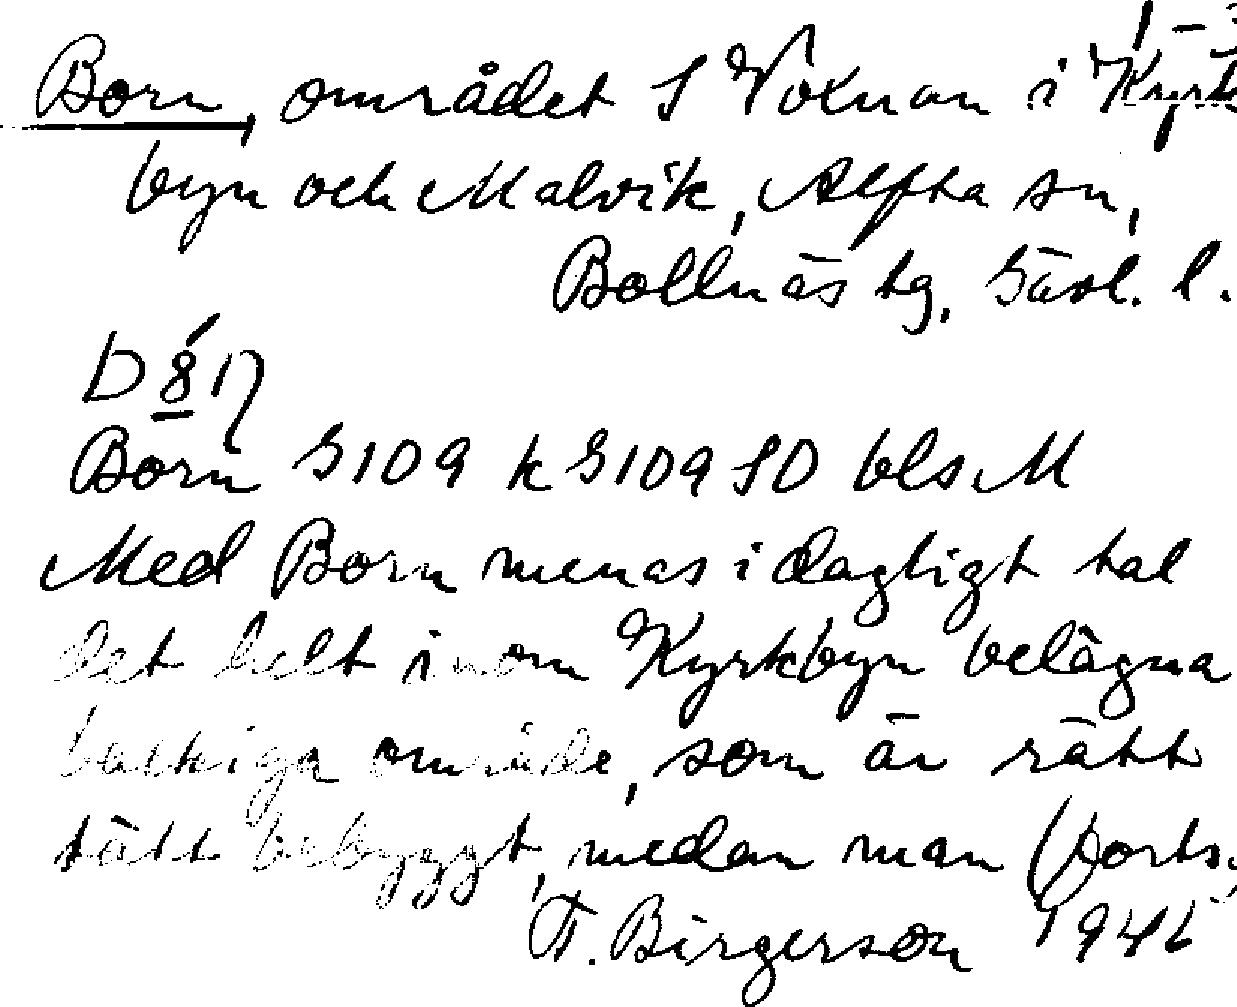 1–3
Born, området S Voxnan i Kyrk
byn och Malvik, Alfta sn,
Bollnäs tg, Gävl. l.
D 8 17
Born G109 k G109 SO bls M
Med Born menas i dagligt tal
det helt inom Kyrkbyn belägna
backiga område, som är rätt
tätt bebyggt, medan man (forts.
F. Birgerson 1946